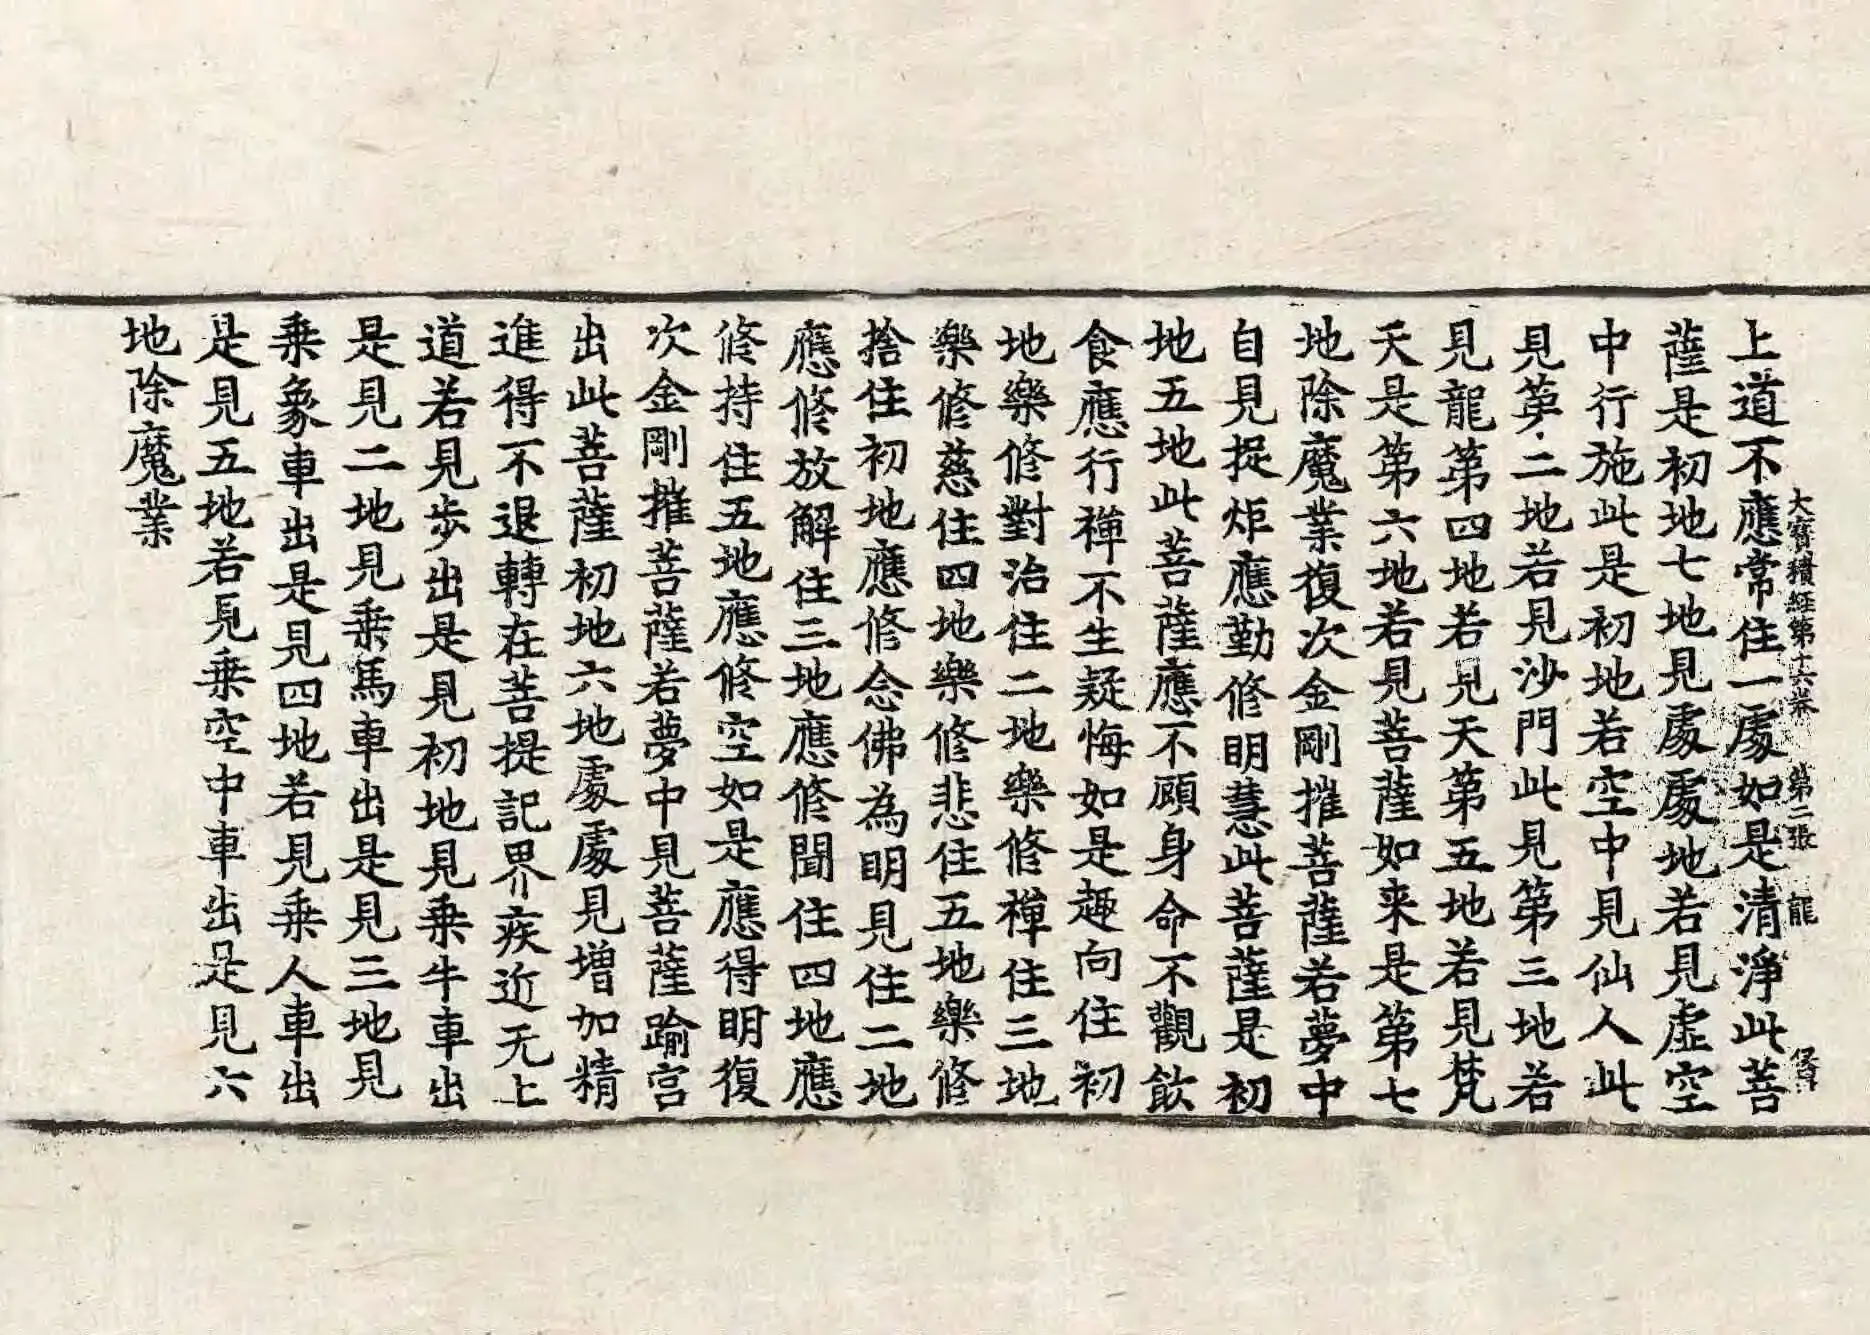 大寶積經第十六卷　第二張　龍
上道不應常住一處如是清淨此菩
薩是初地七地見處處地若見虛空
中行施此是初地若空中見仙人此
見第二地若見沙門此見第三地若
見龍第四地若見天第五地若見梵
天是第六地若見菩薩如来是第七
地除魔業復次金剛摧菩薩若夢中
自見捉炬應勤修明慧此菩薩是初
地五地此菩薩應不顧身命不觀飲
食應行禪不生疑悔如是趣向住初
地樂修對治住二地樂修禪住三地
樂修慈住四地樂修悲住五地樂修
捨住初地應修念佛為明見住二地
應修放解住三地應修聞住四地應
修持住五地應修空如是應得明復
次金剛摧菩薩若夢中見菩薩踰宮
出此菩薩初地六地處處見增加精
進得不退轉在菩提記界疾近无上
道若見步出是見初地見乘牛車出
是見二地見乘馬車出是見三地見
乘象車出是見四地若見乘人車出
是見五地若見乘空中車出是見六
地除魔業